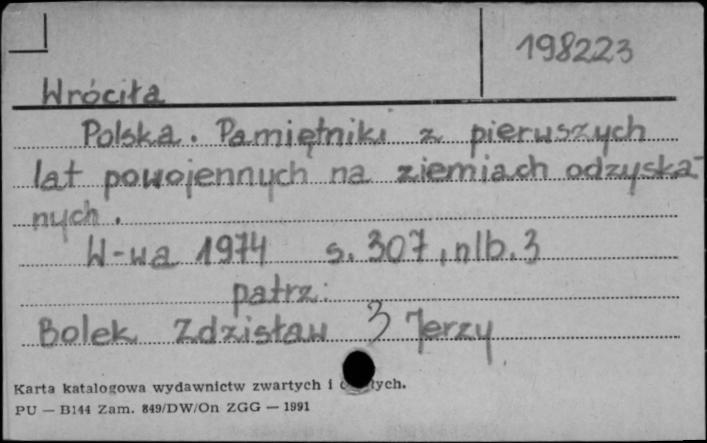 198223
Wróciła
Polska. Pamiętniki z pierwszych
lat powojennych na ziemiach odzyska-
nych.
W-wa 1974 s. 307, nlb. 3
patrz:
Bolek Zdzisław Jerzy
Karta katalogowa wydawnictw zwartych i
PU — B144 Zam. 849/DW/On ZGG — 1991